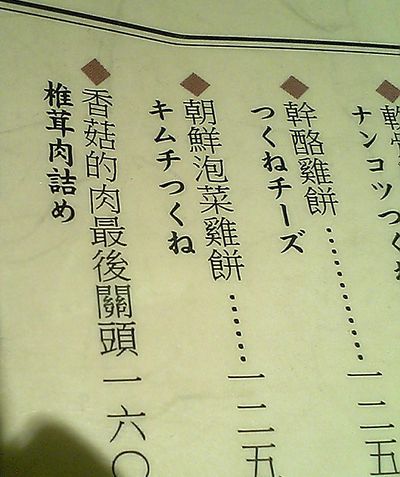 ナンコツつくね
幹酪雞餅………一二五
つくねチーズ
朝鮮泡菜雞餅……一二五
キムチつくね
香菇的肉最後關頭一六〇
椎茸肉詰め